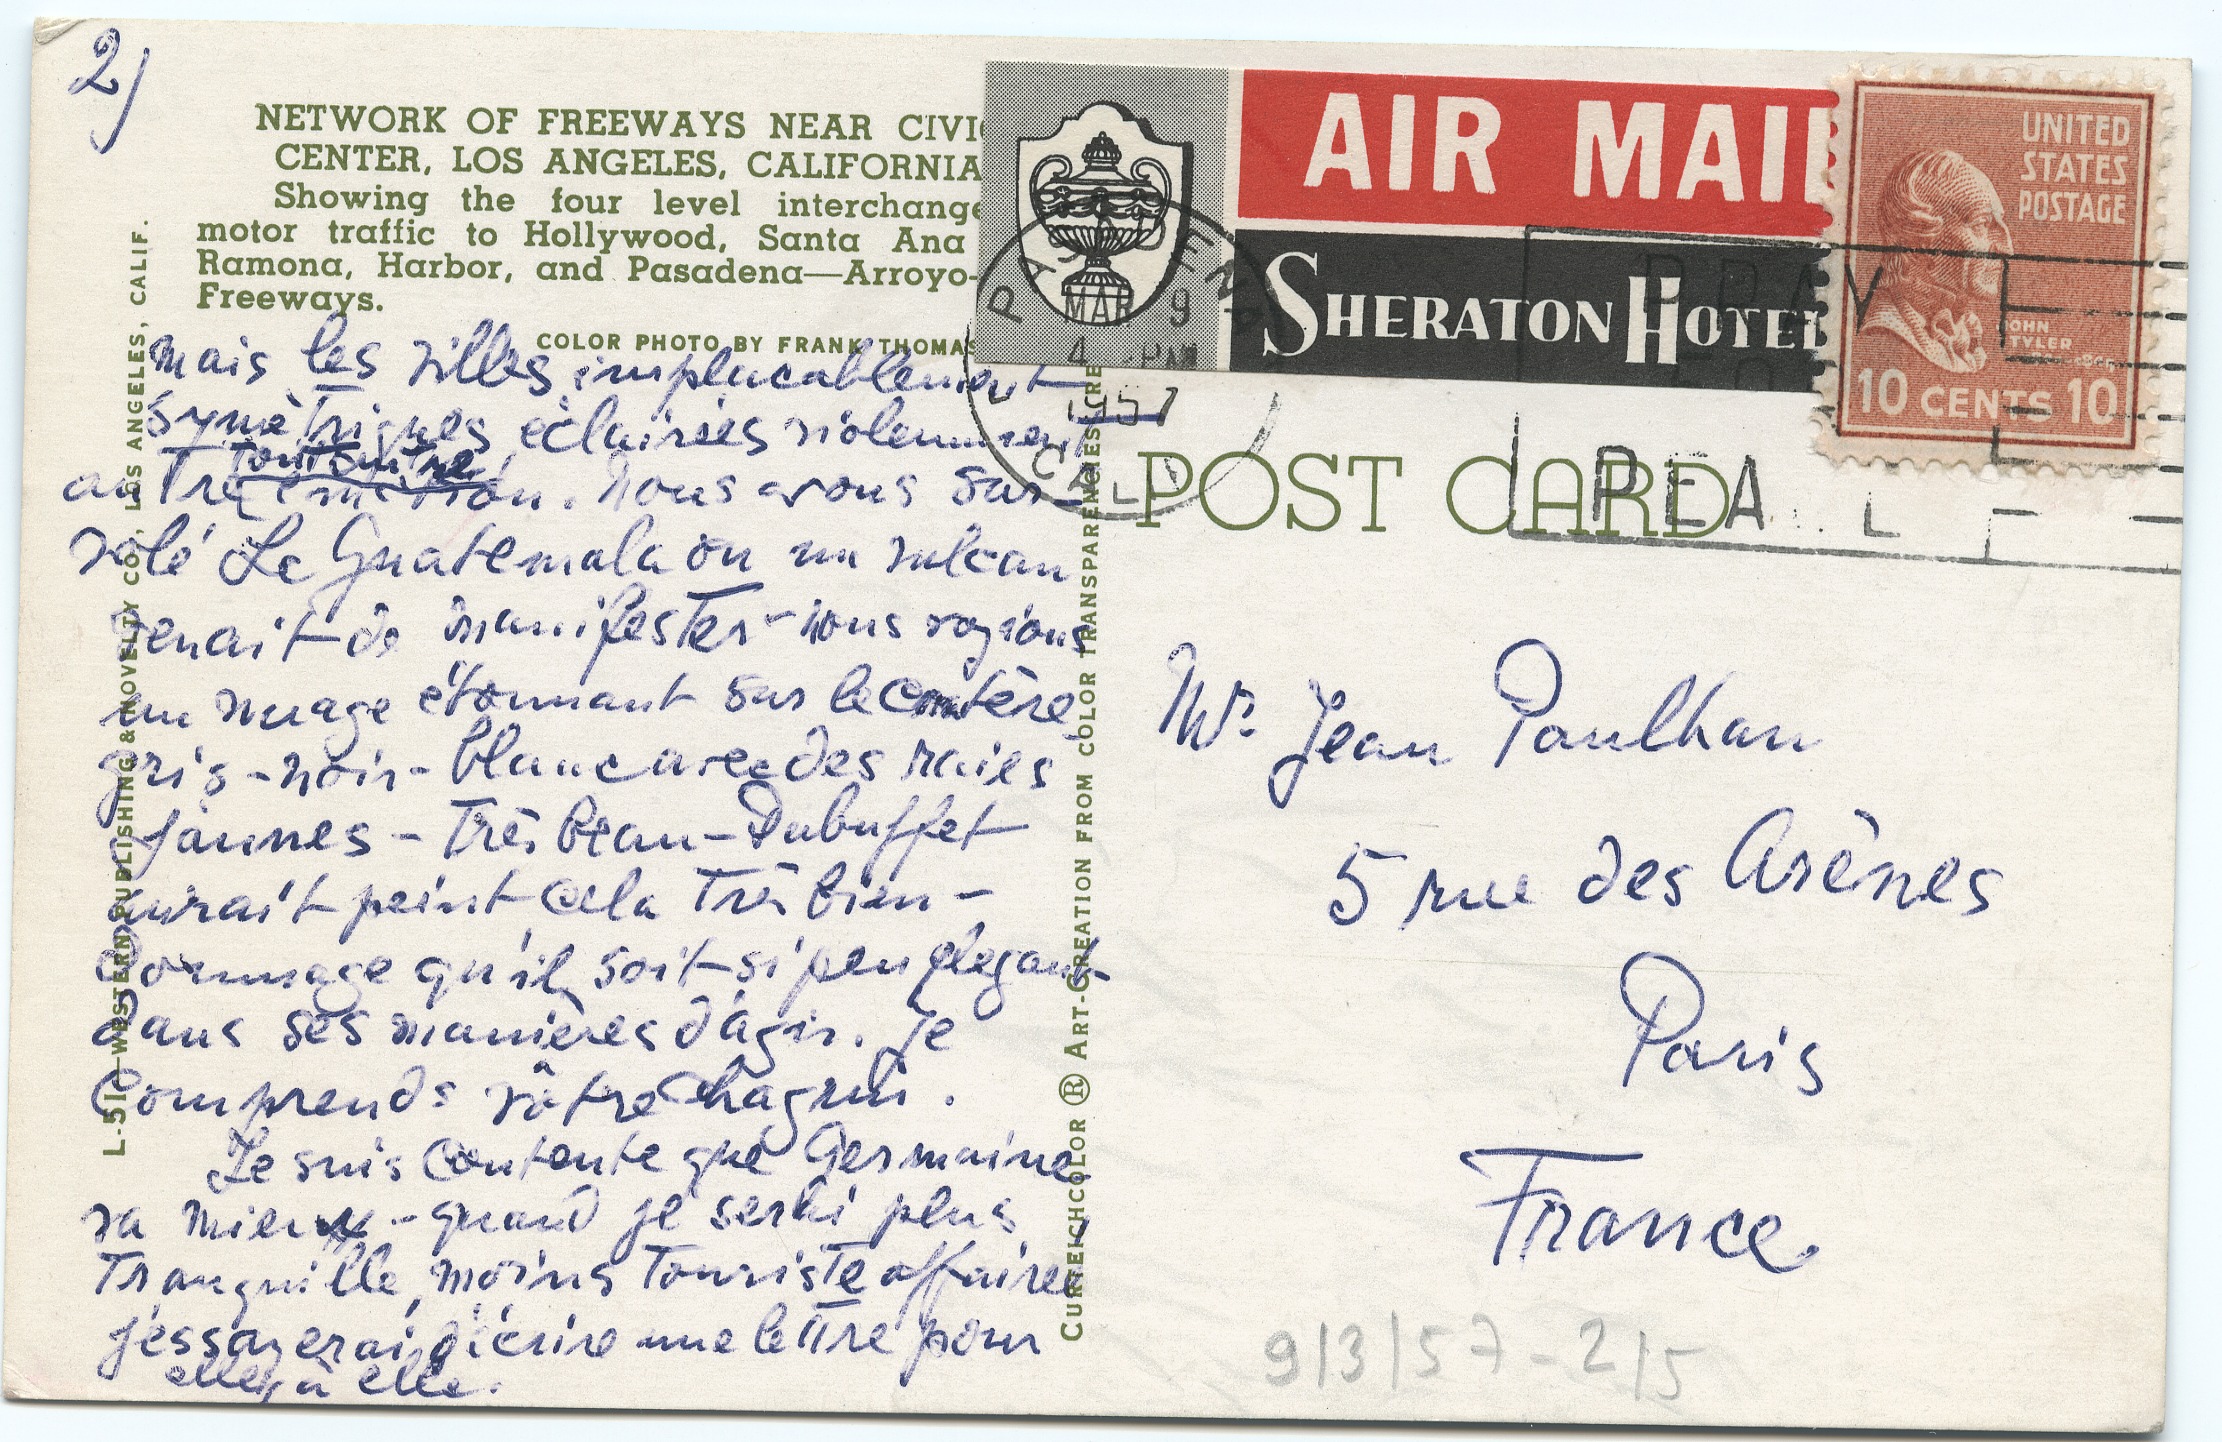 2)
NETWORK OF FREEWAYS NEAR CIVI
CENTER, LOS ANGELES, CALIFORNIA
Showing the four level interchange
motor traffic to Hollywood, Santa Ana
Ramona, Harbor, and Pasadena—Arroyo-
Freeways.
COLOR PHOTO BY FRANK THOMAS
mais les villes implacablement
symètriques, éclairées violemment
toutautre
autre émotion. Nous avons sur-
volé Le Guatemala ou un vulcan
venait de manifester - nous voyions
un nuage étonnant sur le cratère
gris-noir-blanc avec des raies
jaunes - Très beau - Dubuffet
aurait peint cela très bien -
Dommage qu'il soit si peu élegant
dans ses manières d'agir. Je
comprends vôtre chagrin.
Je suis contente que Germaine
va mieux - quand je serai plus
Tranquille, moins touriste affairée
j'essayerai d'écrire une lettre pour
elle, à elle.
L-51—WESTERN PUBLISHING & NOVELTY CO., LOS ANGELES, CALIF.
CURTEICHCOLOR ® ART-CREATION FROM COLOR TRANSPARENCIES
AIR MAIL
SHERATON HOTEL
UNITED
STATES
POSTAGE
JOHN
TYLER
10 CENTS 10
PASADENA
MAR 9
4 PM
1957
CALIF
PRAY
FOR
PEA
POST CARD
Mr Jean Paulhan
5 rue des Arènes
Paris
France
9/3/57-2/5